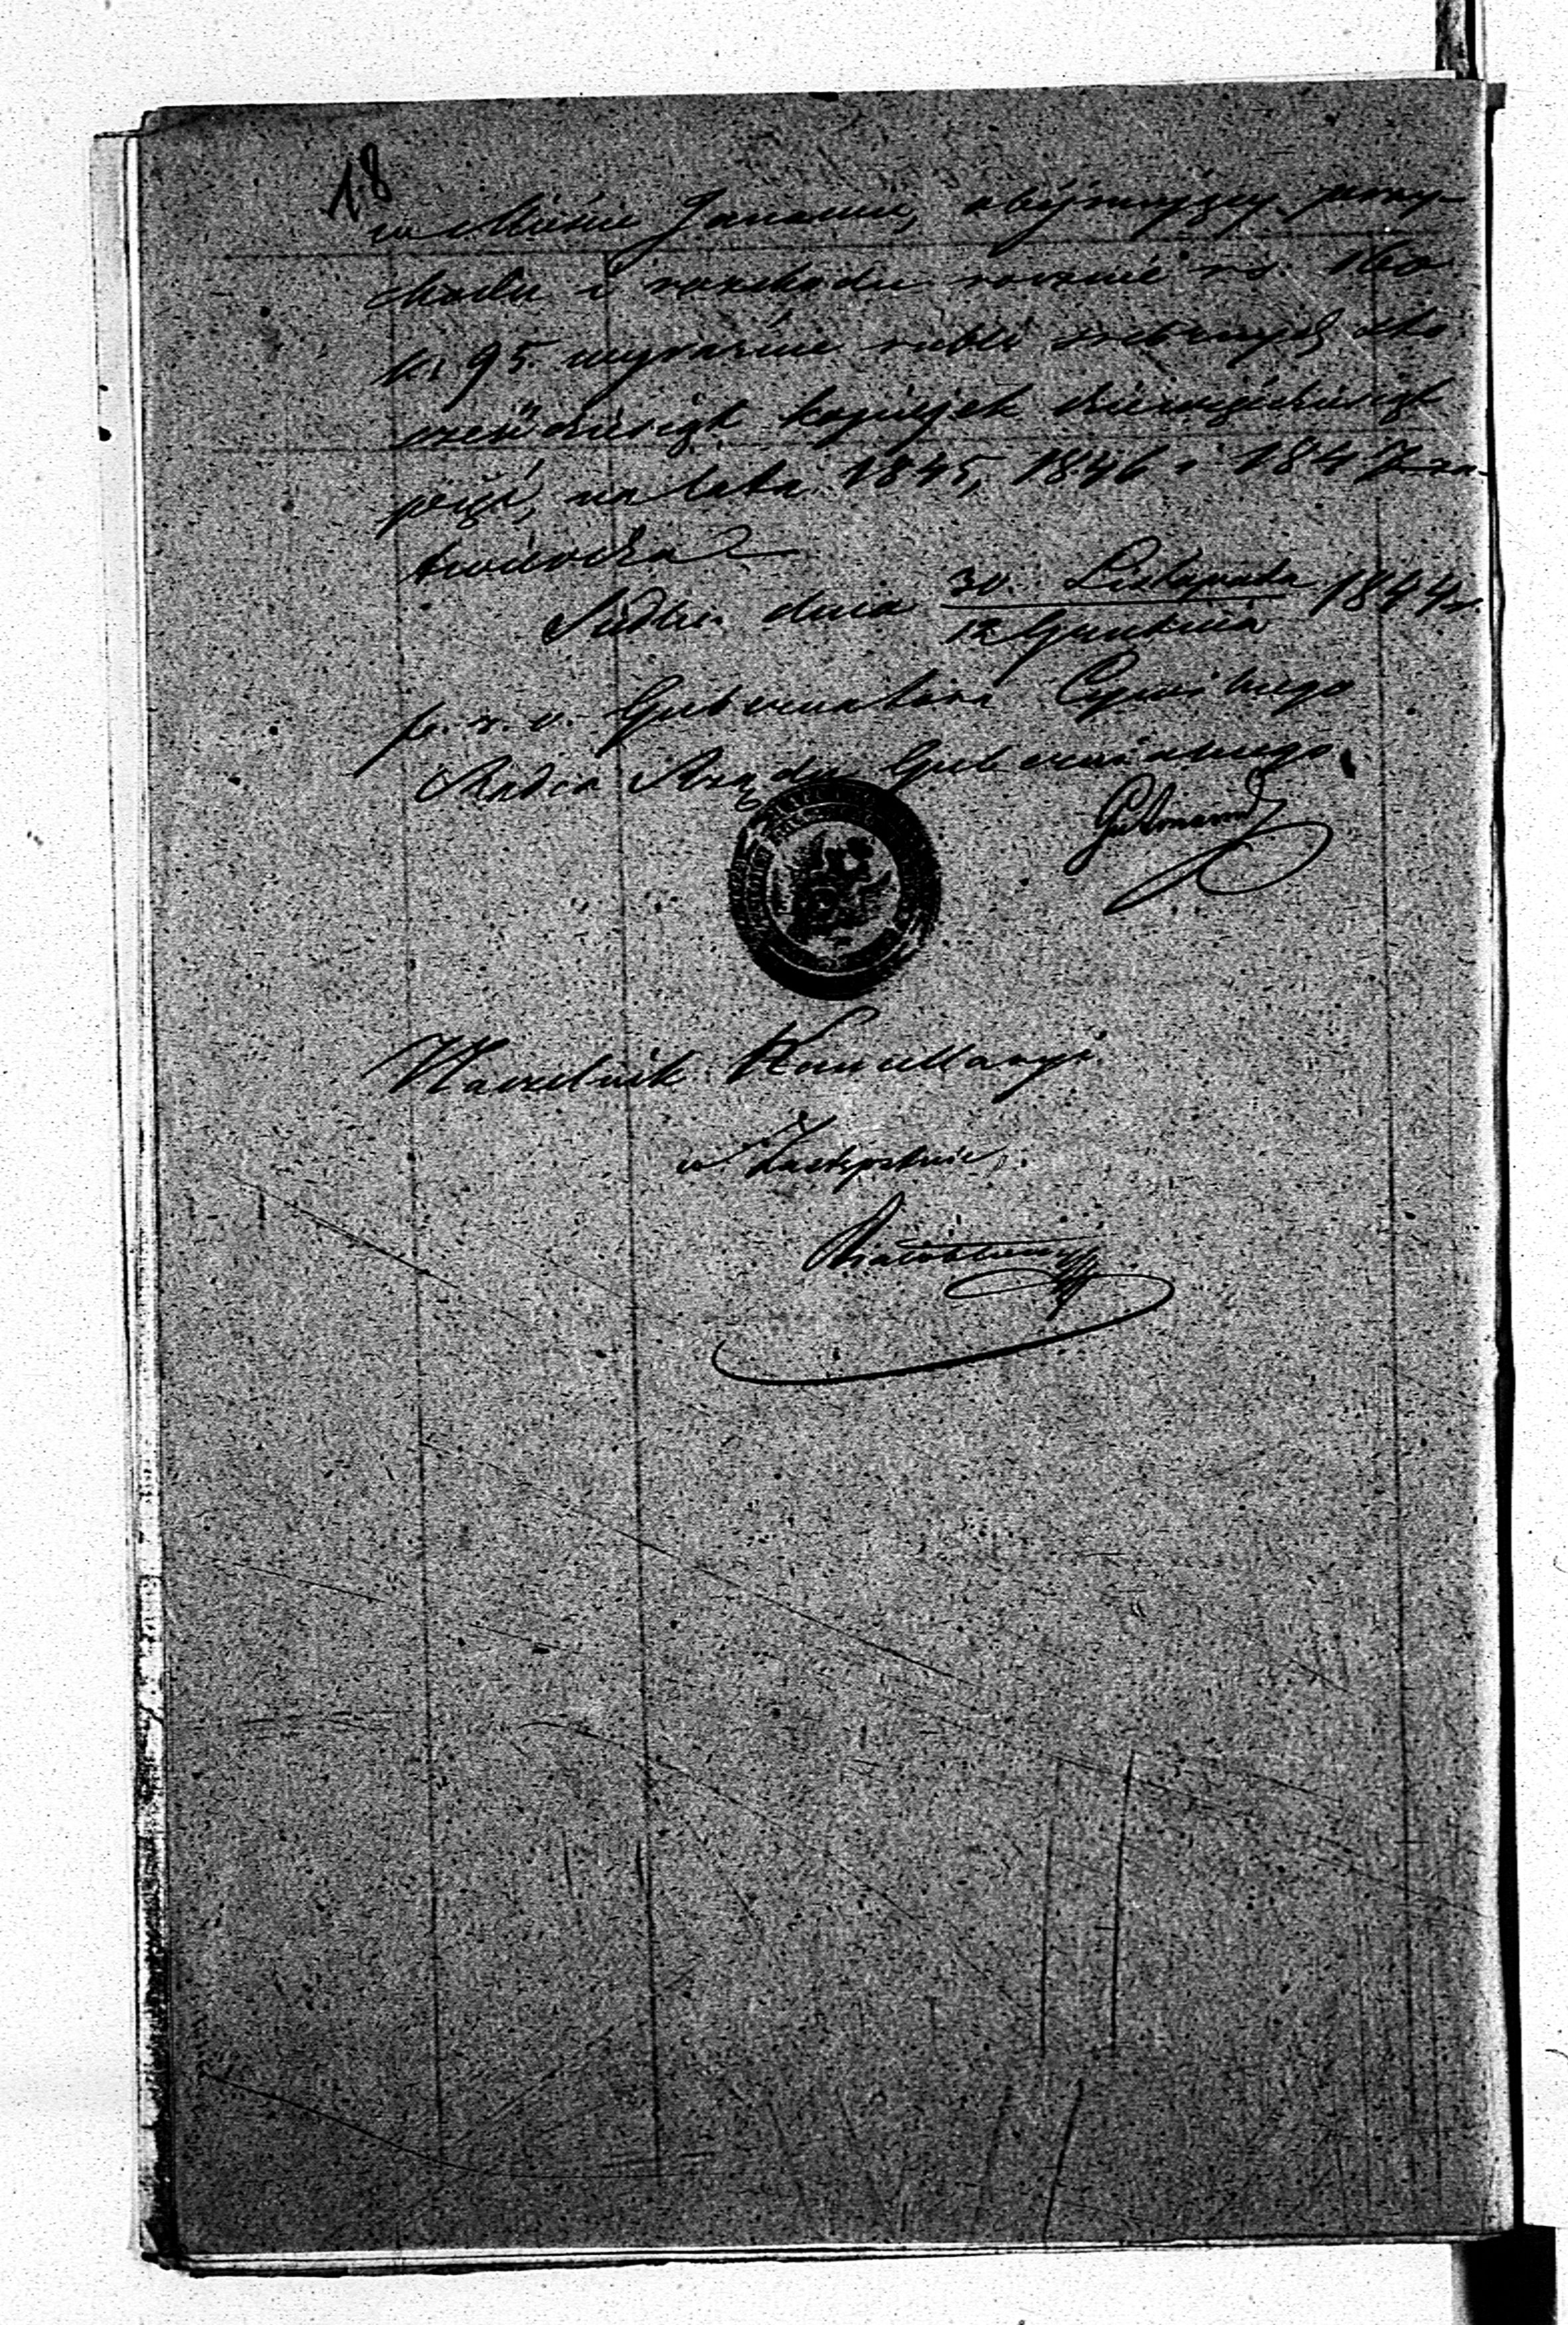 18
w Mieście Janowie, obéjmujący przy-
chodu i rozchodu rocznie rs. 160
k. 95. wyraźnie rubli srebrnych sto
sześćdziesiąt kopiejek dziewięćdziesiąt
pięć, na lata 1845, 1846 i 1847 za-
twierdza
Siedlce dnia 30. Listopada 1844 r.
12 Grudnia
p. o. Gubernatora Cywilnego
Radca Rządu Gubernialnego
Gutmann
Naczelnik Kancellaryi
w Zastępstwie